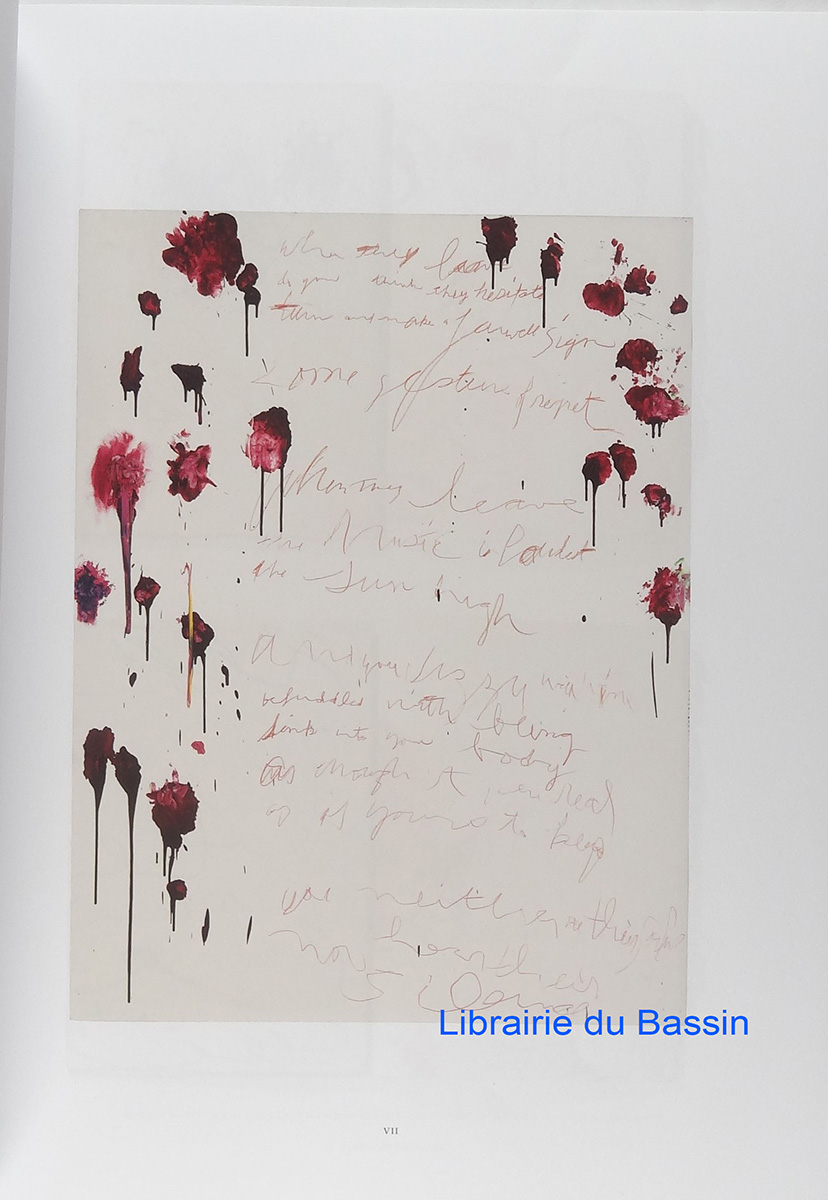 When they leave
do you think they hesitate
turn and make a farewell sign
some gesture of regret
When they leave
the Music is loudest
the Sun high
and you dizzy with wine
befuddled with being
sink into your body
as though it were real
as if yours to keep
you neither see their
nor hear their
Silence
Librairie du Bassin
VII